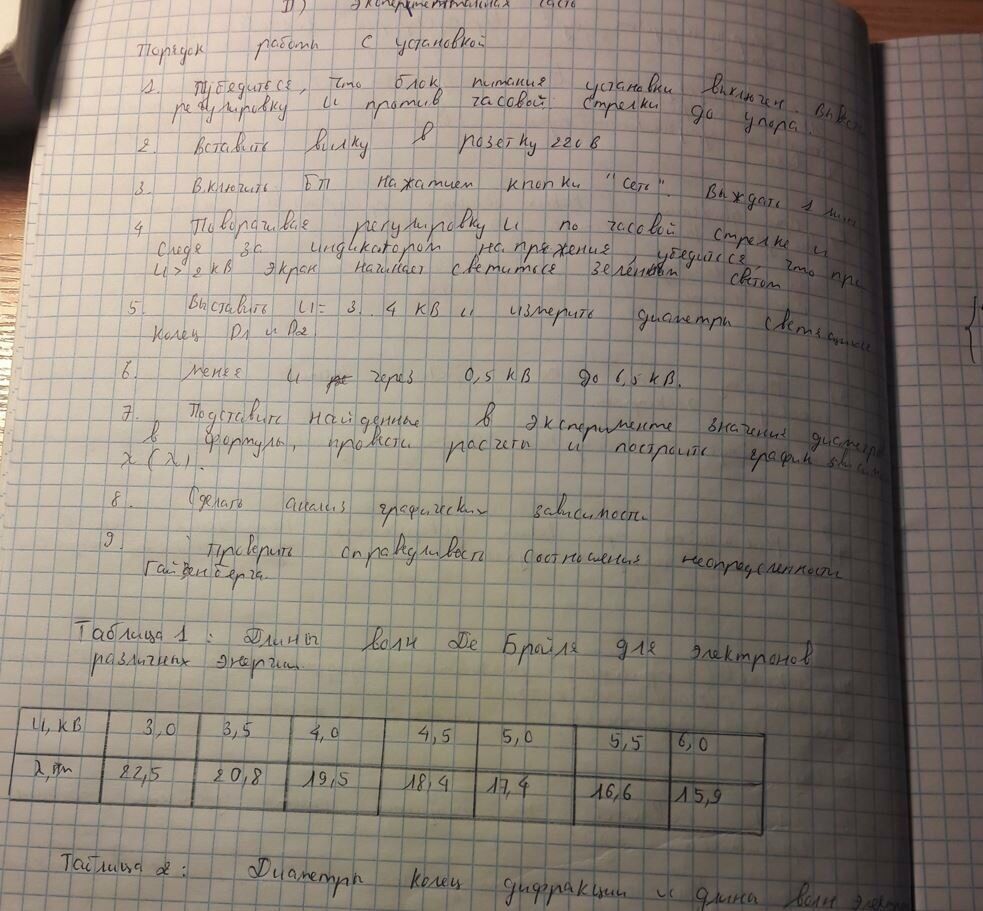 II) экспериментальная часть
Порядок работы с установкой
1. Убедиться, что блок питания установки выключен. Вывести
регулировку U против часовой стрелки до упора.
2. Вставить вилку в розетку 220 В
3. Включить БП нажатием кнопки "Сеть". Выждать 1 мин
4 Поворачивая регулировку U по часовой стрелке и
следя за индикатором напряжения, убедиться, что при
U > 2 кВ экран начинает светиться зелёным светом
5. Выставить U = 3..4 кВ и измерить диаметры светящихся
колец D1 и D2.
6. Меняя U через 0,5 кВ до 6,5 кВ.
7. Подставить найденные в эксперименте значения диаметров
в формулы, провести расчёты и построить график
λ (λ).
8. Сделать анализ графических зависимости
9. Проверить справедливость соотношения неопределенности
Гайзенберга.
Таблица 1: Длины волн Де Бройля для электронов
различных энергии
U, кВ 3,0 3,5 4,0 4,5 5,0 5,5 6,0
λ, пм 22,5 20,8 19,5 18,4 17,4 16,6 15,9
Таблица 2: Диаметры колец дифракции и длина волн